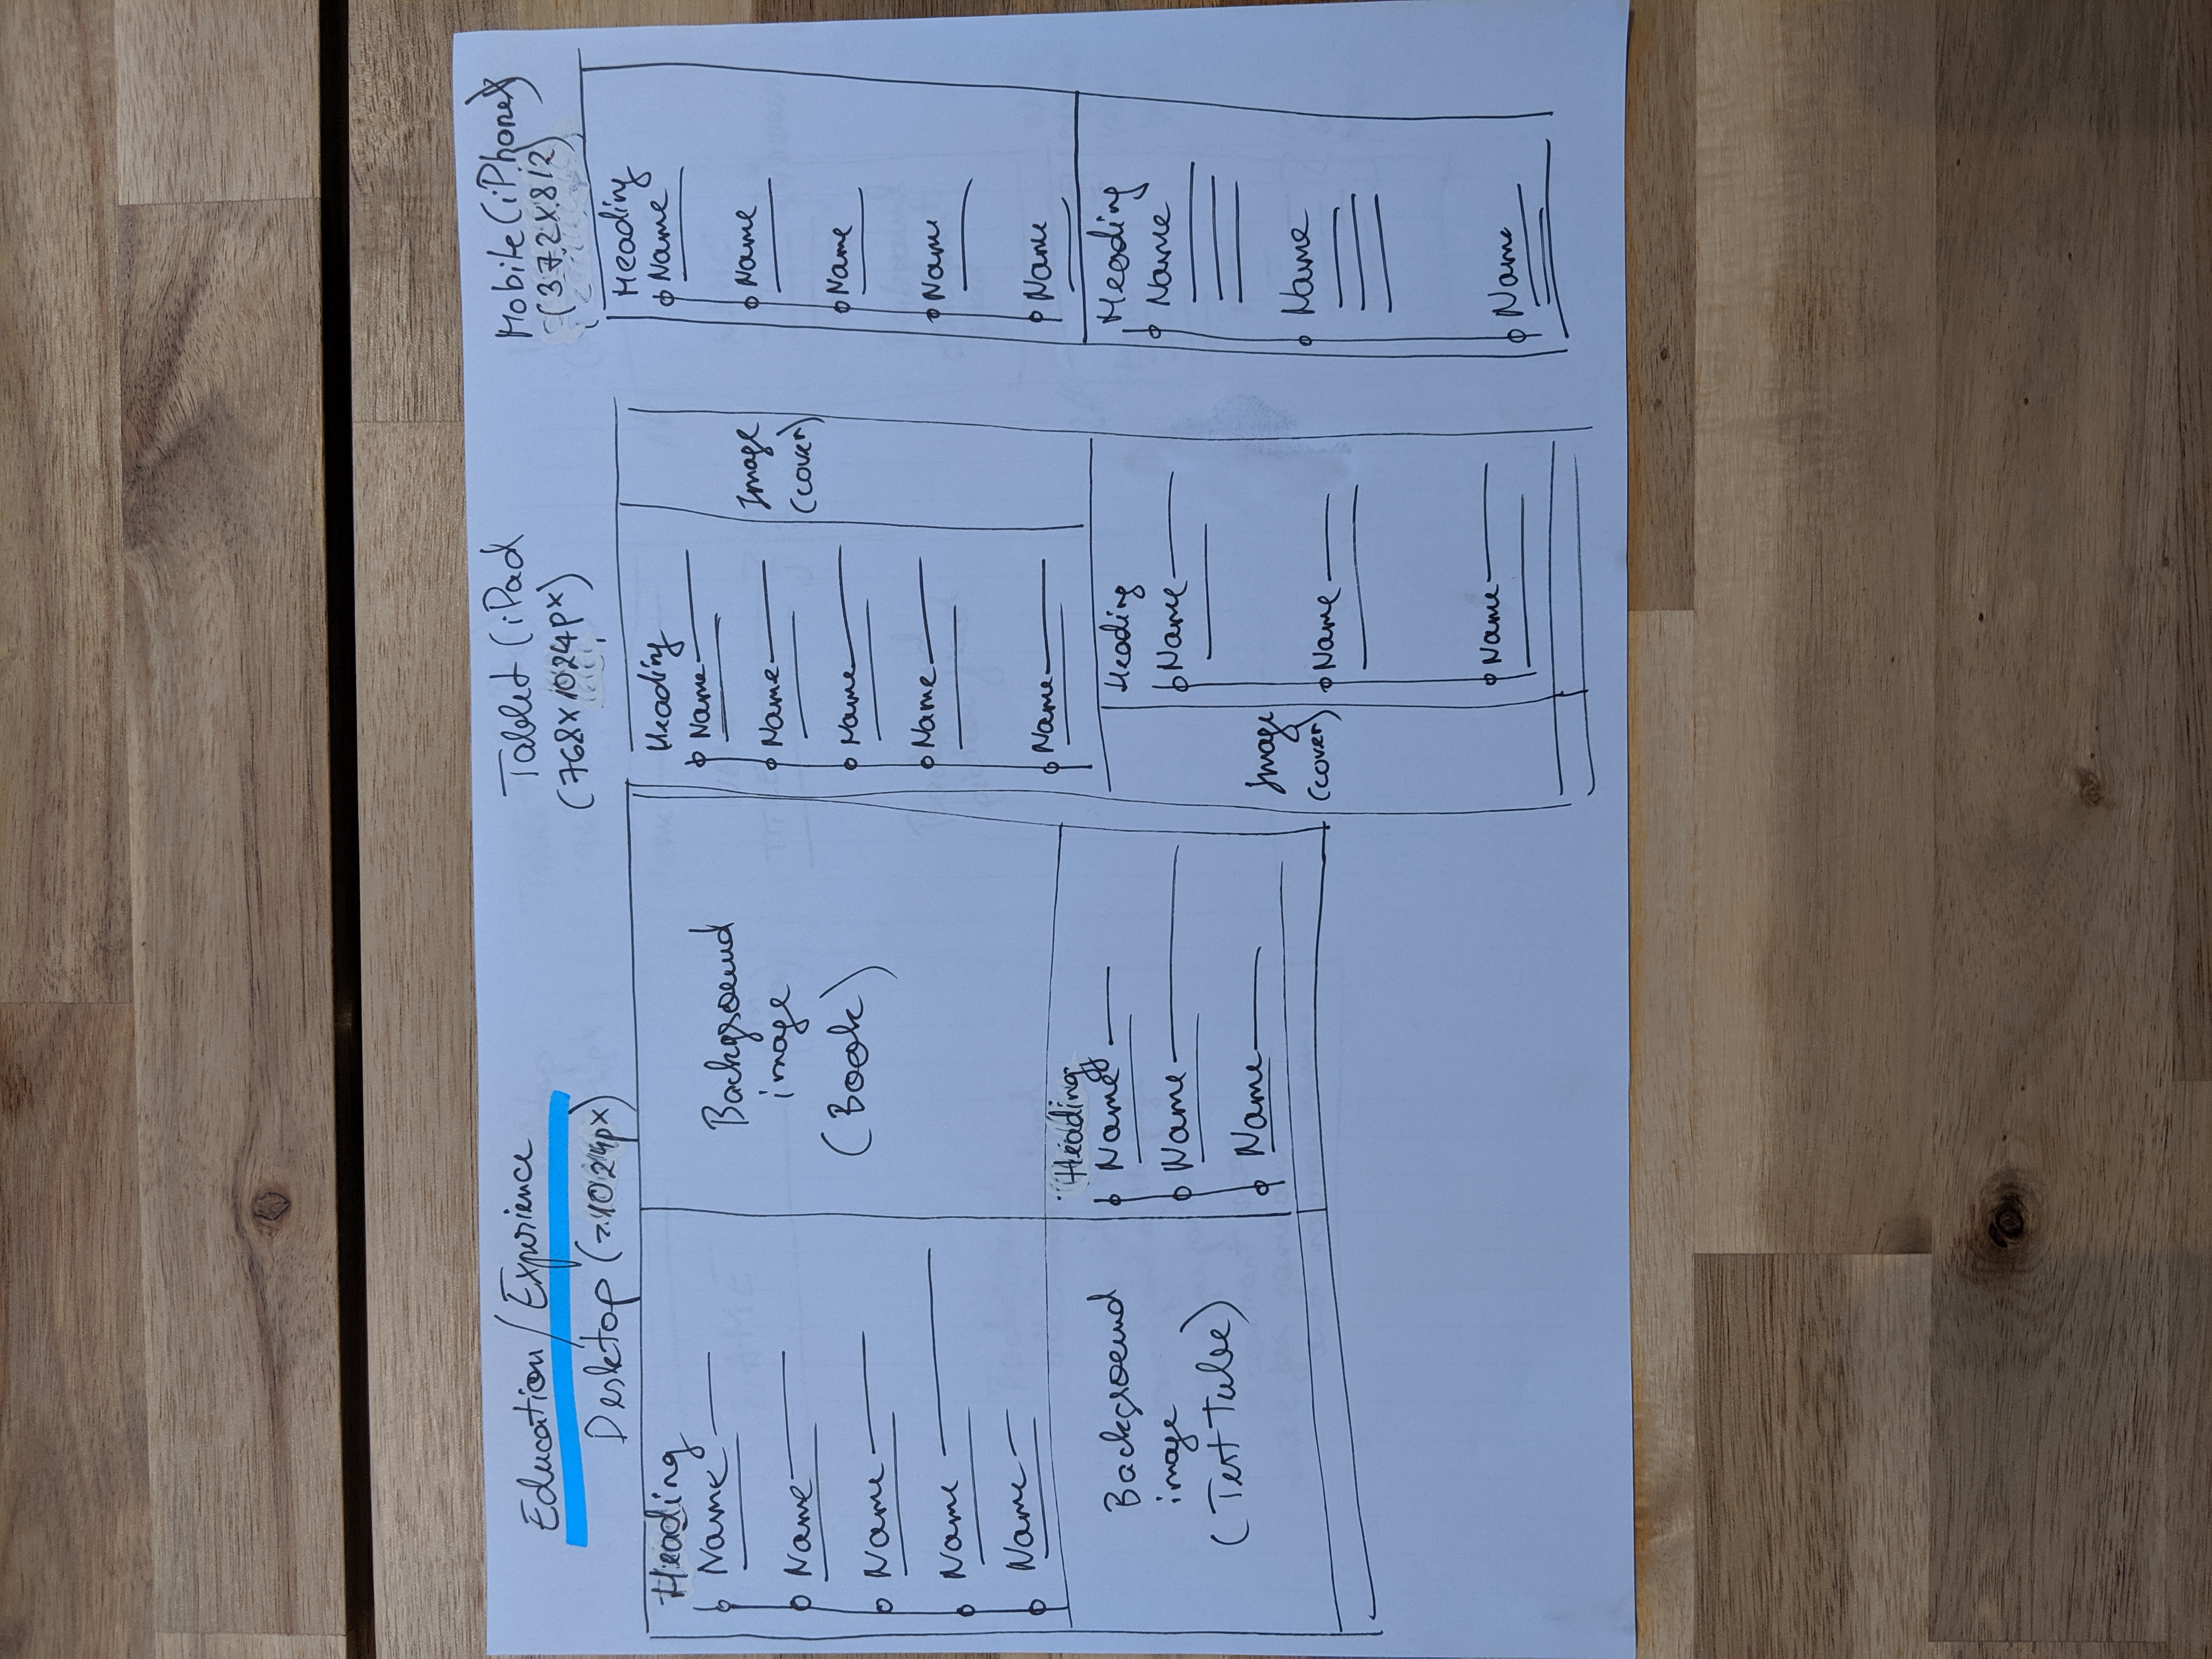 Education/Experience
Desktop (>1024px)
Heading
Name
Name
Name
Name
Name
Background
image
(Book)
Background
image
(Test tube)
Heading
Name
Name
Name
Tablet (iPad
(768x1024px)
Heading
Name
Name
Name
Name
Name
Image
(cover)
Image
(cover)
Heading
Name
Name
Name
Mobile (iPhoneX)
(372x812)
Heading
Name
Name
Name
Name
Name
Heading
Name
Name
Name